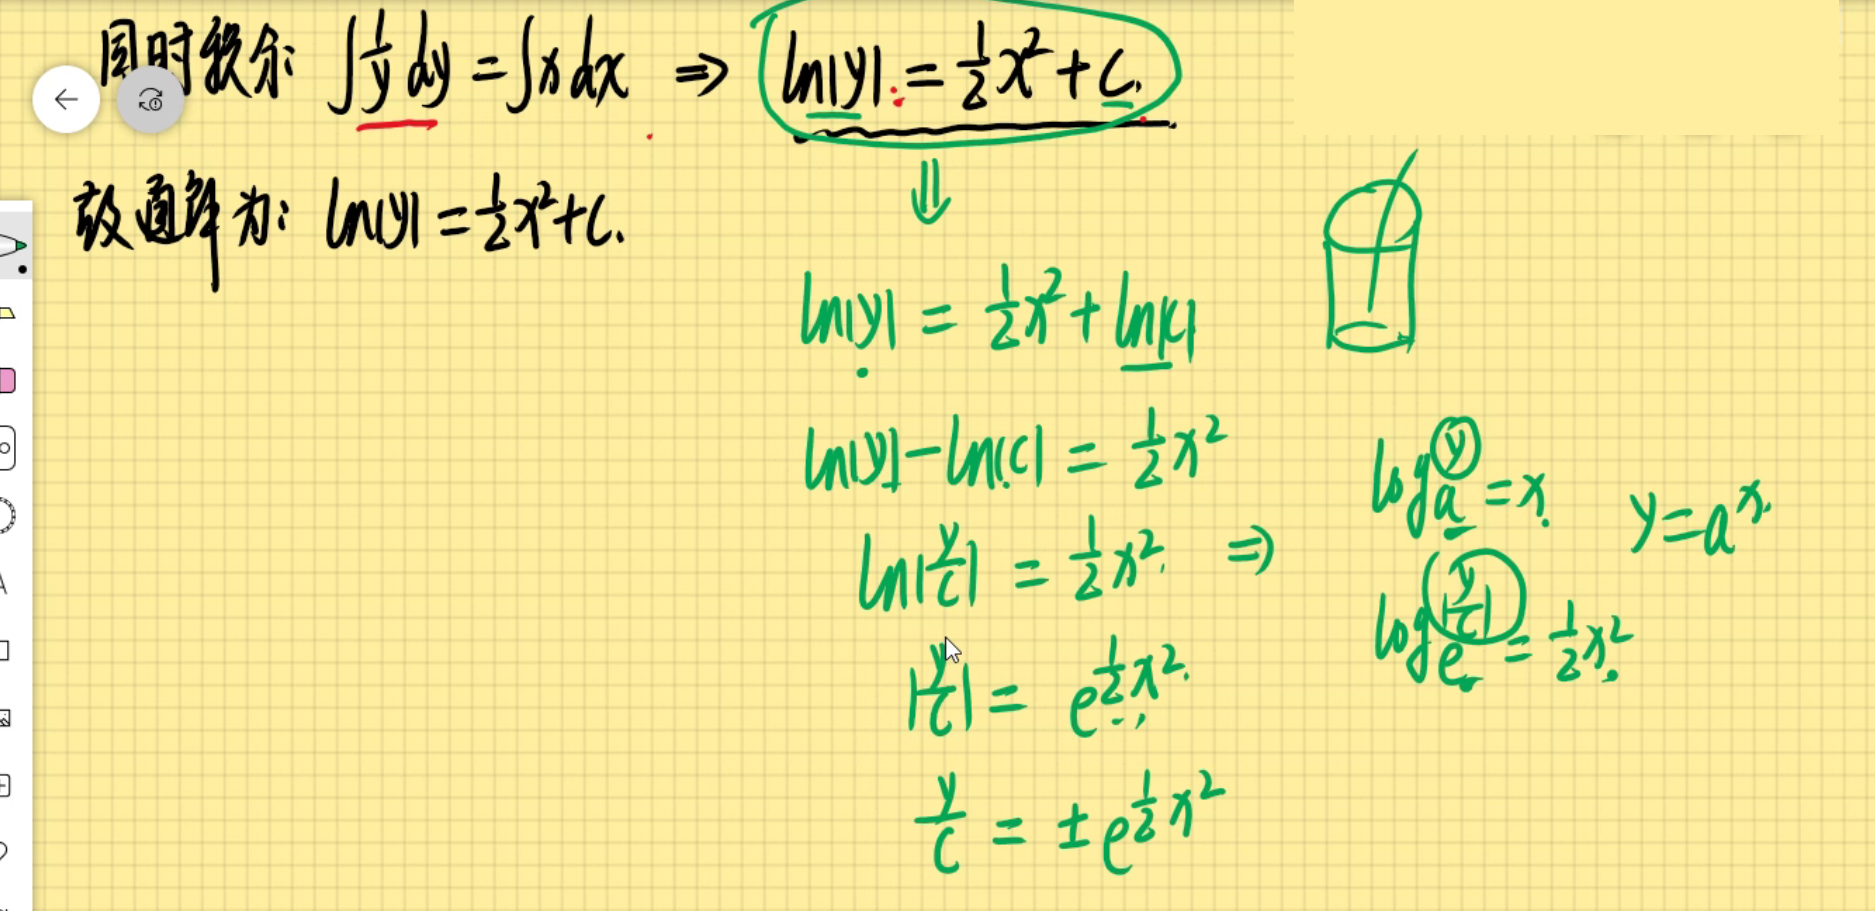 同时积分: ∫1/y dy = ∫x dx ⇒ ln|y| = 1/2 x² + C.
故通解为: ln|y| = 1/2 x² + C.
ln|y| = 1/2 x² + ln|C|
ln|y| - ln|C| = 1/2 x²
ln|y/C| = 1/2 x² ⇒
|y/C| = e^(1/2 x²)
y/C = ± e^(1/2 x²)
log_a^y = x
y = a^x
log_e^|y/C| = 1/2 x²